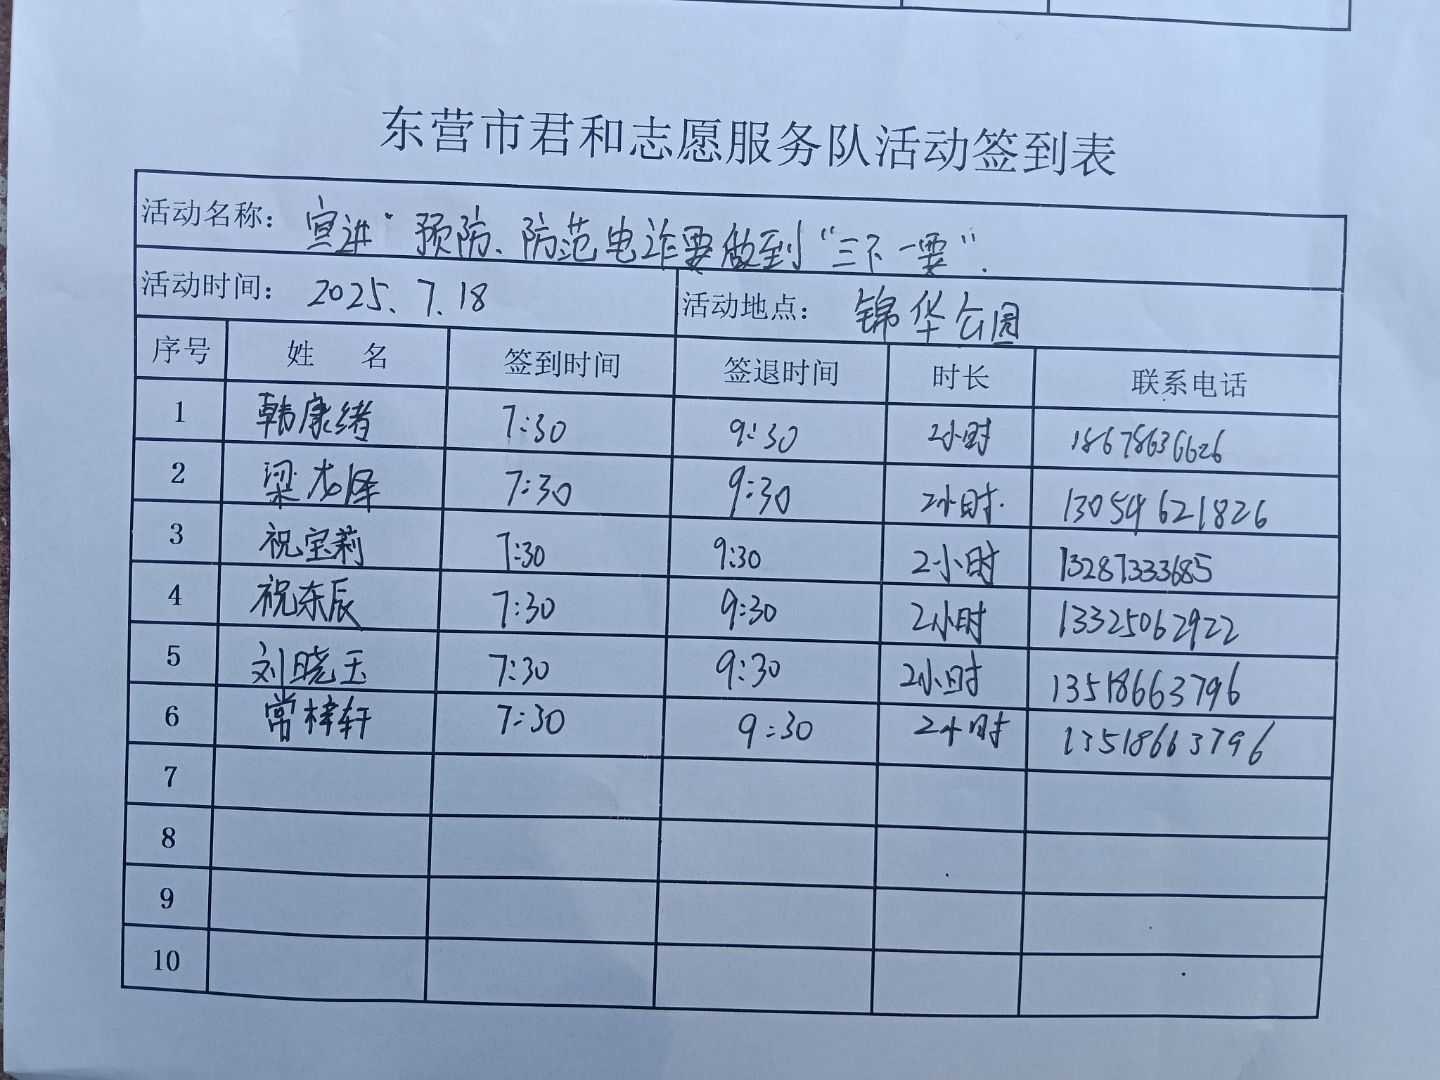 东营市君和志愿服务队活动签到表
活动名称： 宣进"预防、防范电诈要做到"三不一要".
活动时间： 2025.7.18 活动地点： 锦华公园
序号 姓 名 签到时间 签退时间 时长 联系电话
1 韩康绪 7:30 9:30 2小时 18678636626
2 梁龙泽 7:30 9:30 2小时. 13054621826
3 祝宝莉 7:30 9:30 2小时 13287333685
4 祝东辰 7:30 9:30 2小时 13325062922
5 刘晓玉 7:30 9:30 2小时 13518663796
6 常梓轩 7:30 9:30 2小时 13518663796
7
8
9
10